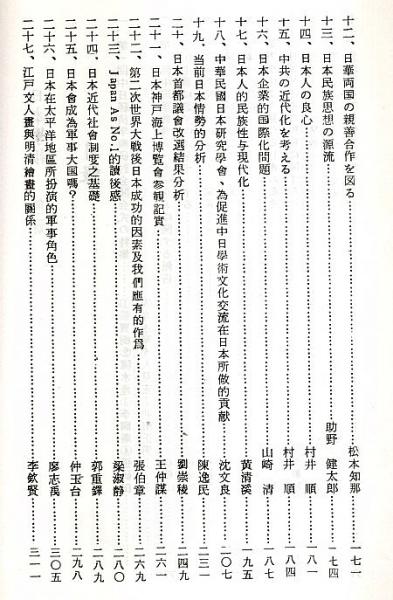 十二、日華両国の親善合作を図る……松本知那……一七一
十三、日本民族思想の源流……助野健太郎……一七四
十四、日本人の良心……村井　順……一八一
十五、中共の近代化を考える……村井　順……一八四
十六、日本企業的国際化問題……山崎　清……一八七
十七、日本人的民族性与現代化……黃清溪……一九五
十八、中華民國日本研究學會、為促進中日學術文化交流在日本所做的貢献……沈文良……二〇七
十九、当前日本情勢的分析……陳逸民……二三一
二十、日本首都議會改選結果分析……劉崇稜……二四九
二十一、日本神戸海上博覧會参観記實……王仲謀……二六一
二十二、第二次世界大戰後日本成功的因素及我們應有的作爲……張伯章……二六九
二十三、Japan As No.1的讀後感……梁淑靜……二八〇
二十四、日本近代社會制度之基礎……郭重鐸……二八九
二十五、日本會成為軍事大国嗎？……仲玉台……二九八
二十六、日本在太平洋地區所扮演的軍事角色……廖志禹……三〇五
二十七、江戸文人畫與明清繪畫的關係……李欽賢……三一一